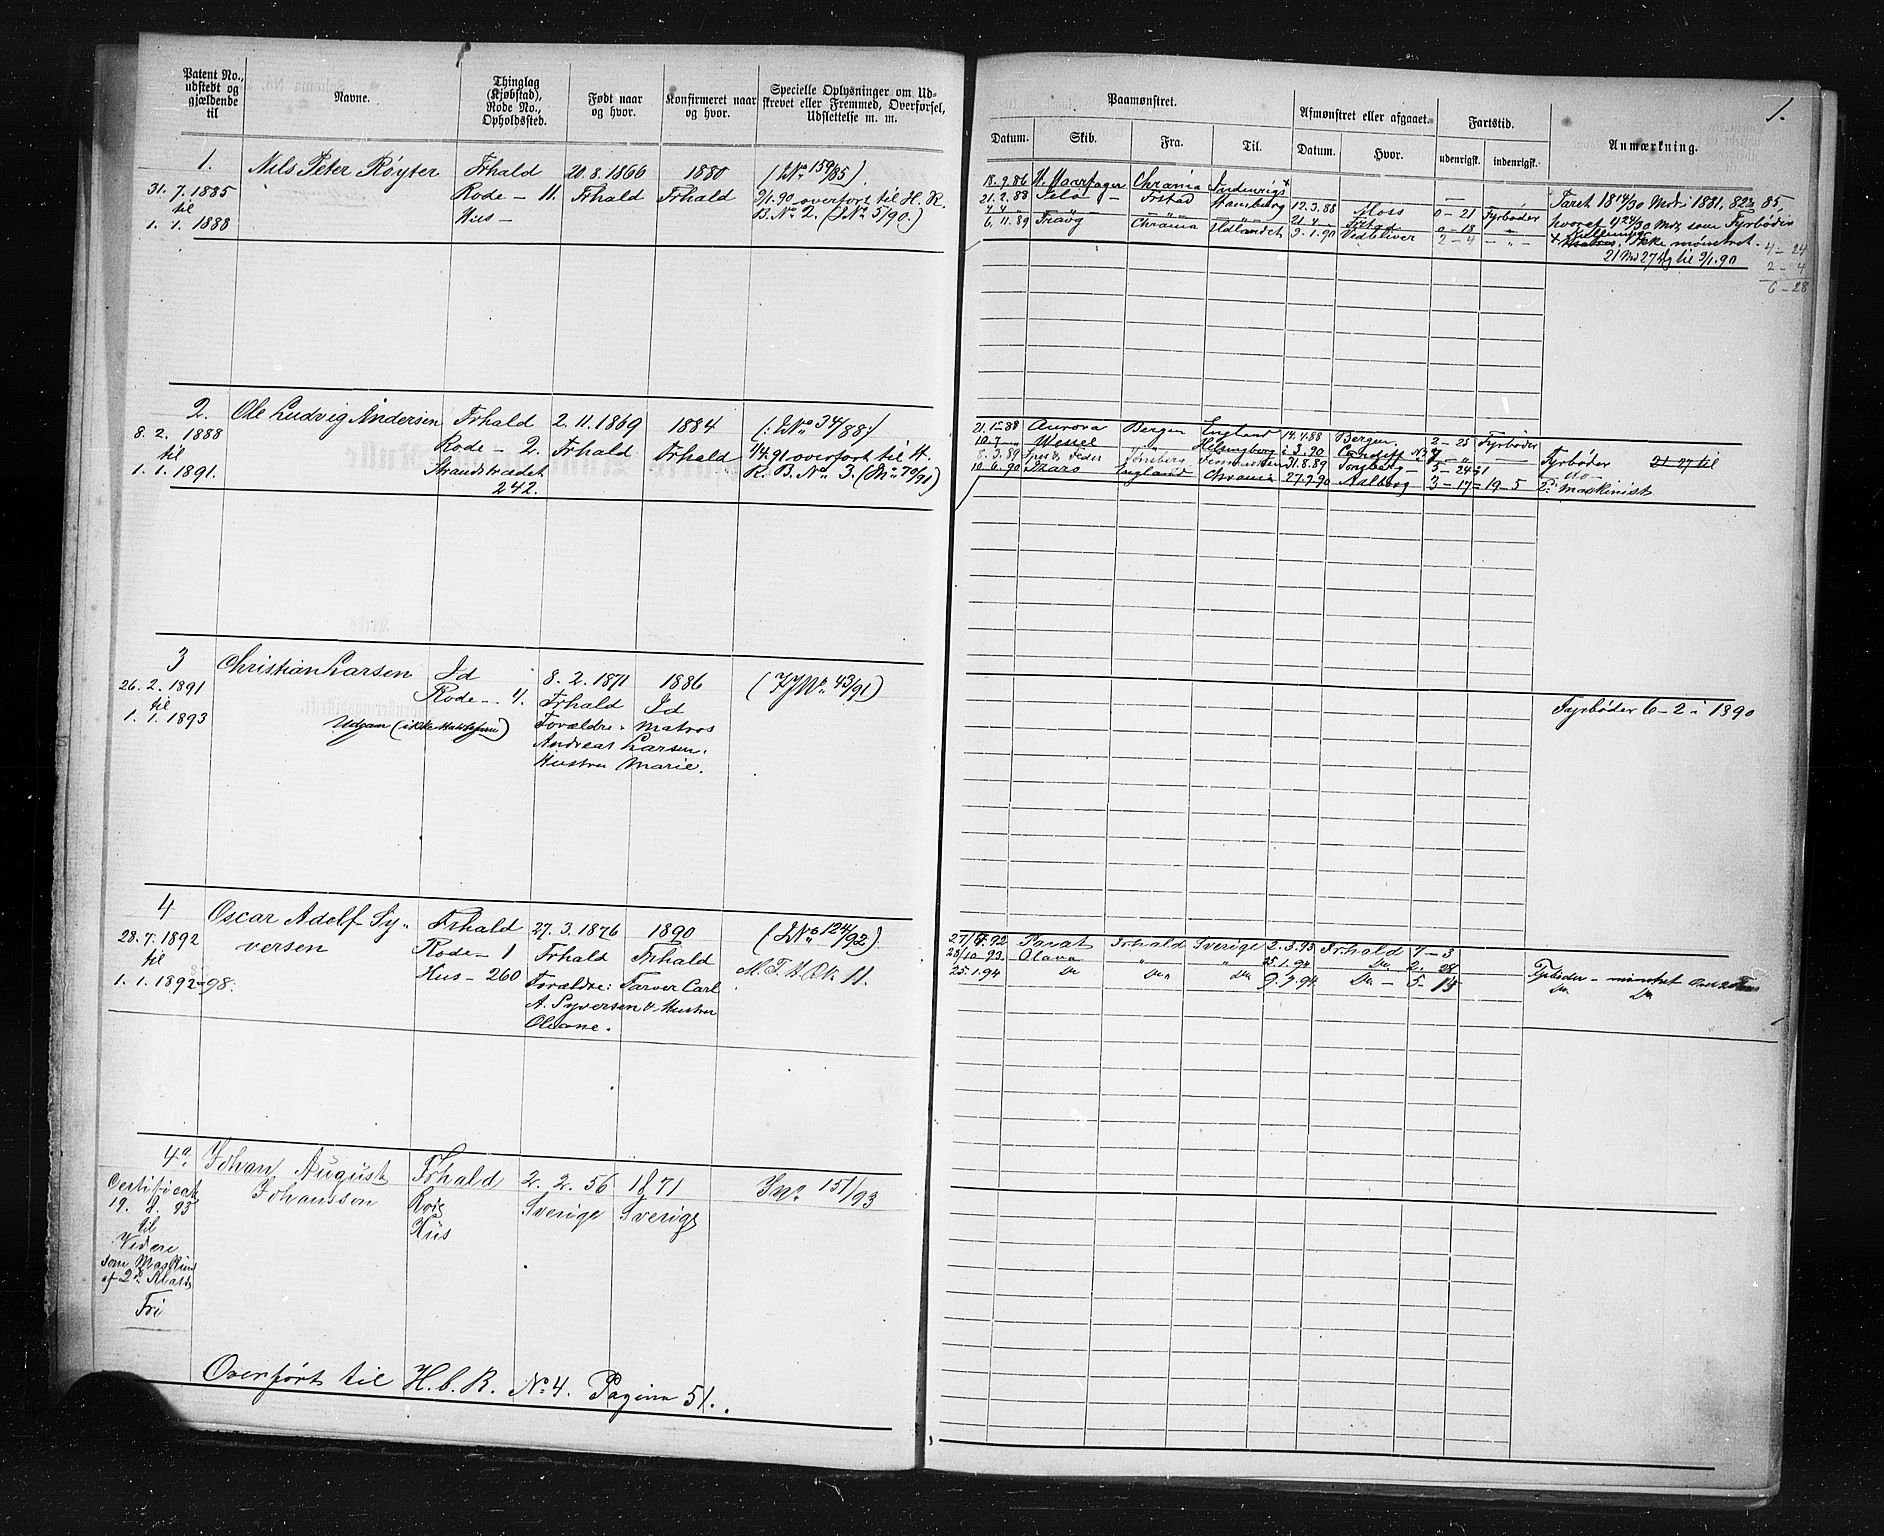 Patent No., udstedt og gjældende til
Navne.
Thinglag (Kjøbstad), Rode No., Opholdssted.
Født naar og hvor.
Konfirmeret naar og hvor.
Specielle Oplysninger om Udskrevet eller Fremmed, Overførsel, Udslettelse m. m.
Paamønstret.
Afmønstret eller afgaaet.
Fartstid.
Anmærkning.
1.
Datum.
Skib.
Fra.
Til.
Datum.
Hvor.
udenrigsk.
indenrigsk.
1. Nils Peter Røyter Frhald 20.8.1866 1880 (JNo 159/85)
31.7.1885 Rode - 11. Frhald Frhald 9/1.90 overført til H. R.
til Hus - B. No 2. (JNo 5/90.)
1.1.1888
18.9.86 H. Haarfager Chrania Indenrigs
21.2.88 Frstad Hamburg 12.3.88 Moss 0-21 Fyrbøder
6.11.89 Chrania Udlandet 9.1.90 Vedbliver 2-4
Faret 18 14/30 Mdr i 1881, 82 85
hvoraf 4 24/30 Mdr som Fyrbøder
Ikke mønstret
21 Md 27 dg til 9/1.90
4-24
2-4
6-28
2. Ole Ludvig Andersen Frhald 2.11.1869 1884 (: JNo 34/88:)
8.2.1888 Rode - 2. Frhald Frhald 14/4.91 overført til H.
til Strandstrædet R. B. No 3. (JNo 70/91)
1.1.1891. 242.
21.1.88 Aurora Bergen England 14.4.88 Bergen. 2-25 Fyrbøder
10.7 Wessel Helsingborg 3.90 Cardiff
8.3.89 31.8.89 Tonsberg 5-24
10.6.90 Mars England Chrania 27.9.90 Aalborg 3-17 19-5
Fyrbøder
do
2. Maskinist
3 Christian Larsen Id 8.2.1871 1886 (JNo 43/91)
26.2.1891 Rode - 4. Frhald Id
til Udgaar Forældre: Matros
1.1.1893 Andreas Larsen.
Hustru Marie.
Fyrbøder 6-2 i 1890
4 Oscar Adolf Sy- Frhald 27.3.1876 1890 (JNo 124/92)
28.7.1892 versen Rode - 1 Frhald Frhald
til Hus - 260 Forældre: Farver Carl
1.1.1892-98. A. Syversen & Hustru
Oleane.
Parat Frhald Sverige 2.3.93 Frhald 7-3
28/10 93. Olava 25.1.94 Do 2-28
25.1.94 Do Do Do 9.7.94 Do 5-15
Fyrbøder - mønstret
Do Do
4a Johan August Frhald 2.2.56 1871 JNo 151/93
Certificat Johansson Rode Sverige Sverige
19.8.93 Hus
til
Videre
som Maskinist
af 2den Klasse
Fri
Overført til H. b. R. No 4. Pagina 51.